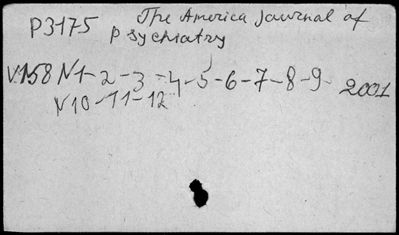 P3175 The America Journal of
psychiatry
V.158 N1-2-3-4-5-6-7-8-9- 2001
N10-11-12